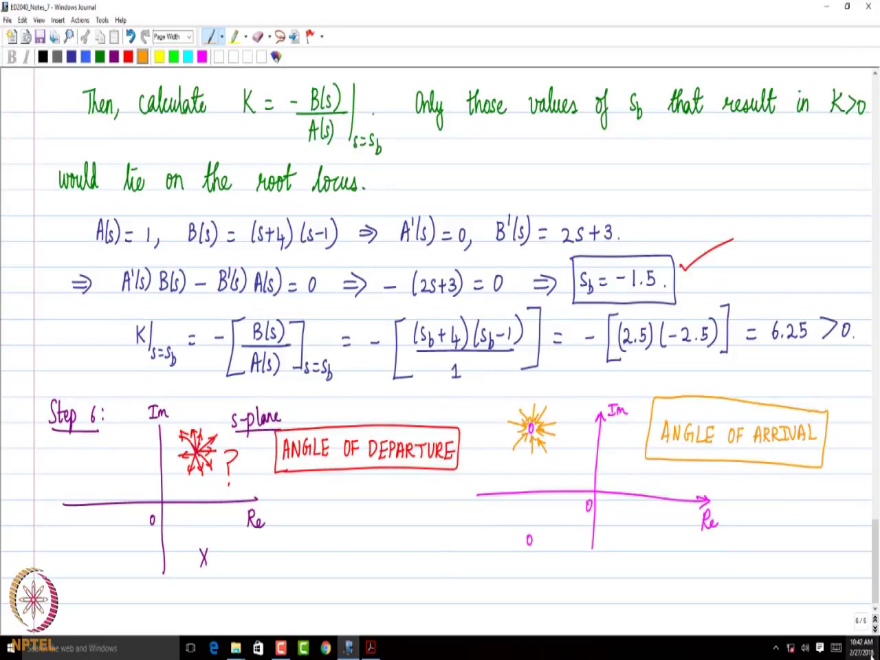 ED2040_Notes_7 - Windows Journal
File Edit View Insert Actions Tools Help
Page Width
B I
Then, calculate K = - B(s)/A(s) |s=sb. Only those values of sb that result in K>0
would lie on the root locus.
A(s) = 1, B(s) = (s+4)(s-1) ⇒ A'(s) = 0, B'(s) = 2s+3.
⇒ A'(s) B(s) - B'(s) A(s) = 0 ⇒ - (2s+3) = 0 ⇒ sb = -1.5. ✓
K|s=sb = - [B(s)/A(s)]s=sb = - [(sb+4)(sb-1)/1] = - [(2.5)(-2.5)] = 6.25 > 0.
Step 6: Im s-plane ANGLE OF DEPARTURE ? Re 0 X
Im ANGLE OF ARRIVAL Re 0
6/6
NPTEL
Search the web and Windows
10:42 AM